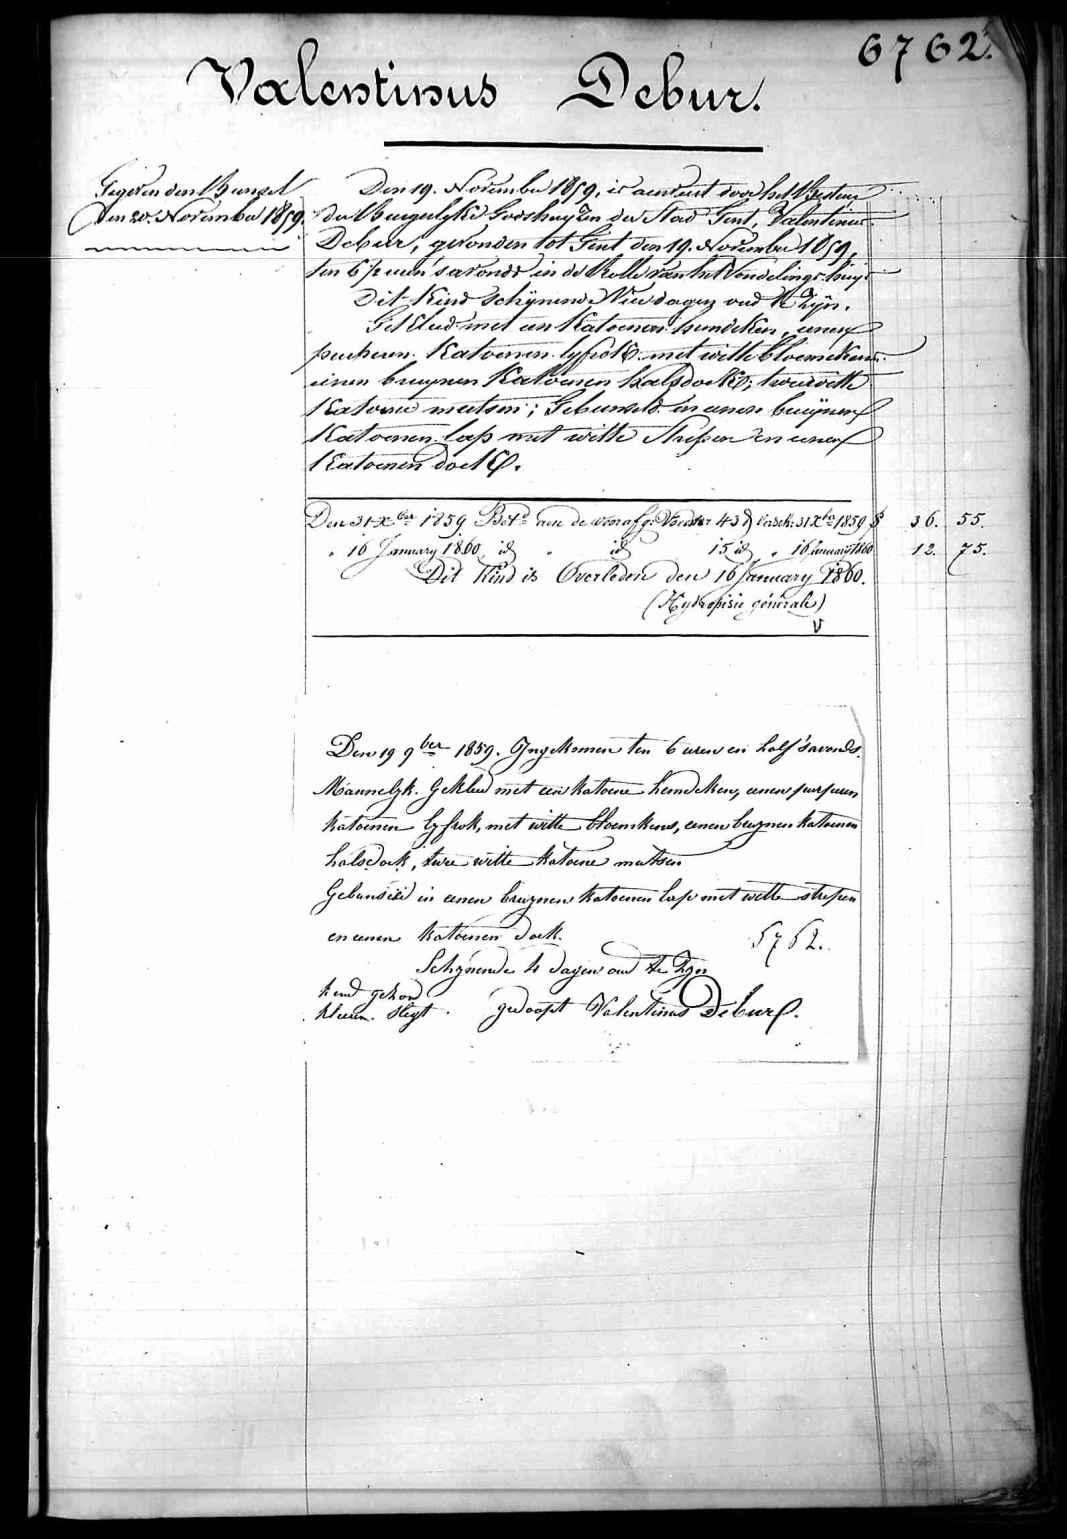 6762.
Valentinus Debur.
Gegeven den Bunsel
Den 20. November 1859.
Den 19. November 1859, is aenveert door het Bestuer
der Burgerlyke Godshuyzen der Stad Gent, Valentinus
Debur, gevonden tot Gent den 19. November 1859,
ten 6 1/2 uren 's avonds in de Rolle van het Vondelingshuys
Dit Kind schynende Vier dagen oud te Zyn.
Gekleed met een Katoenen hemdeken, eenen
purperen Katoenen lyfrok met witte bloemekens
eenen bruynen Katoenen halsdoek; twee witte
Katoene mutsen; Gebunseld in eenen bruynen
Katoenen lap met witte strepen en eenen
Katoenen doek.
Den 31 Xber 1859 Betd aen de 43 d versch: 31 Xbre 1859 36. 55.
" 16 January 1860 id " id 15 id " 16 January 1860 12. 75.
Dit Kind is Overleden den 16 January 1860.
(Hydropisie générale)
Den 19 9ber 1859. Ingekomen ten 6 uren en half 's avonds.
Mannelyk. Gekleed met een katoene hemdeken, eenen purpuren
katoenen lyfrok, met witte bloemkens, eenen bruynen katoenen
halsdoek, twee witte katoene mutsen
Gebunseld in eenen bruynen katoenen lap met witte strepen
en eenen katoenen doek. 5762.
Schynende 4 dagen oud te Zyn
kleeren slegt. gedoopt Valentinus Debur.